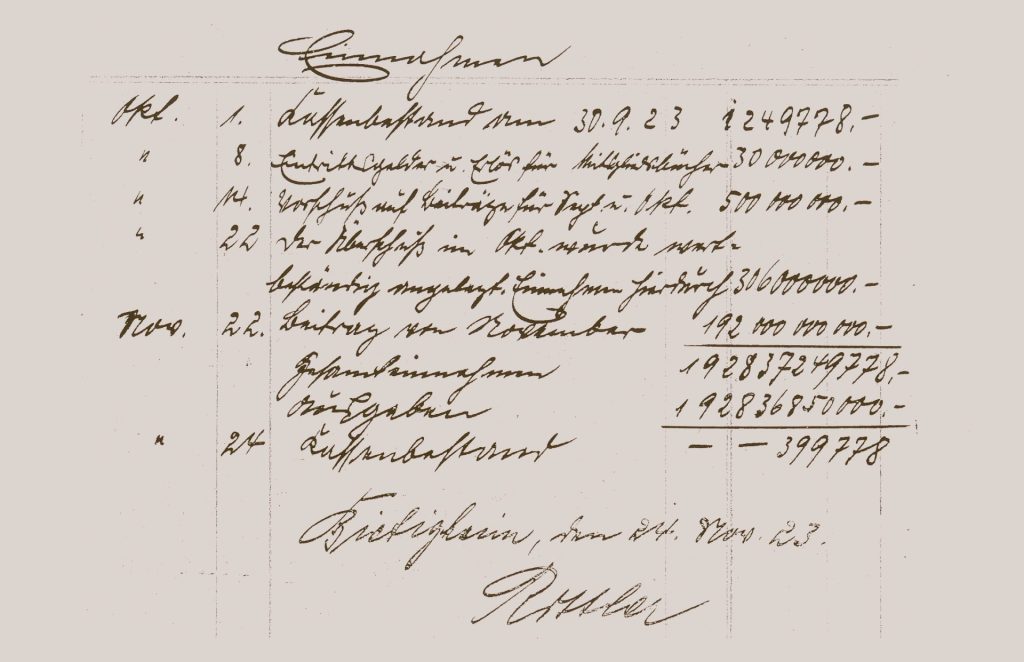 Einnahmen
Okt. 1. Kassenbestand am 30.9.23 1249778.-
" 8. Eintrittsgelder u. Erlös für Mitgliedsbücher 30000000.-
" 14. Vorschuß auf Beiträge für Sept. u. Okt. 500 000 000.-
" 22 Der Überschuß im Okt. wurde wert-
beständig angelegt. Einnahmen hierdurch 306000000.-
Nov. 22. Beitrag von November 192 000 000 000.-
Gesamteinnahmen 192837249778.-
Ausgaben 192836850000.-
" 24 Kassenbestand - - 399778
Bietigheim, den 24. Nov. 23.
Rottler